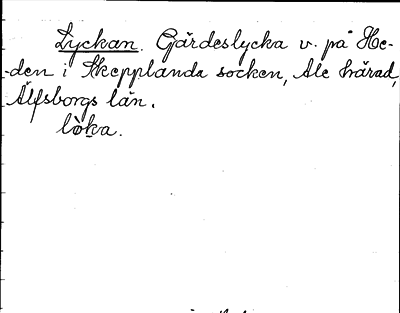 Lyckan. Gärdeslycka v. på He-
den i Skepplanda socken, Ale härad,
Älfsborgs län.
lòka.